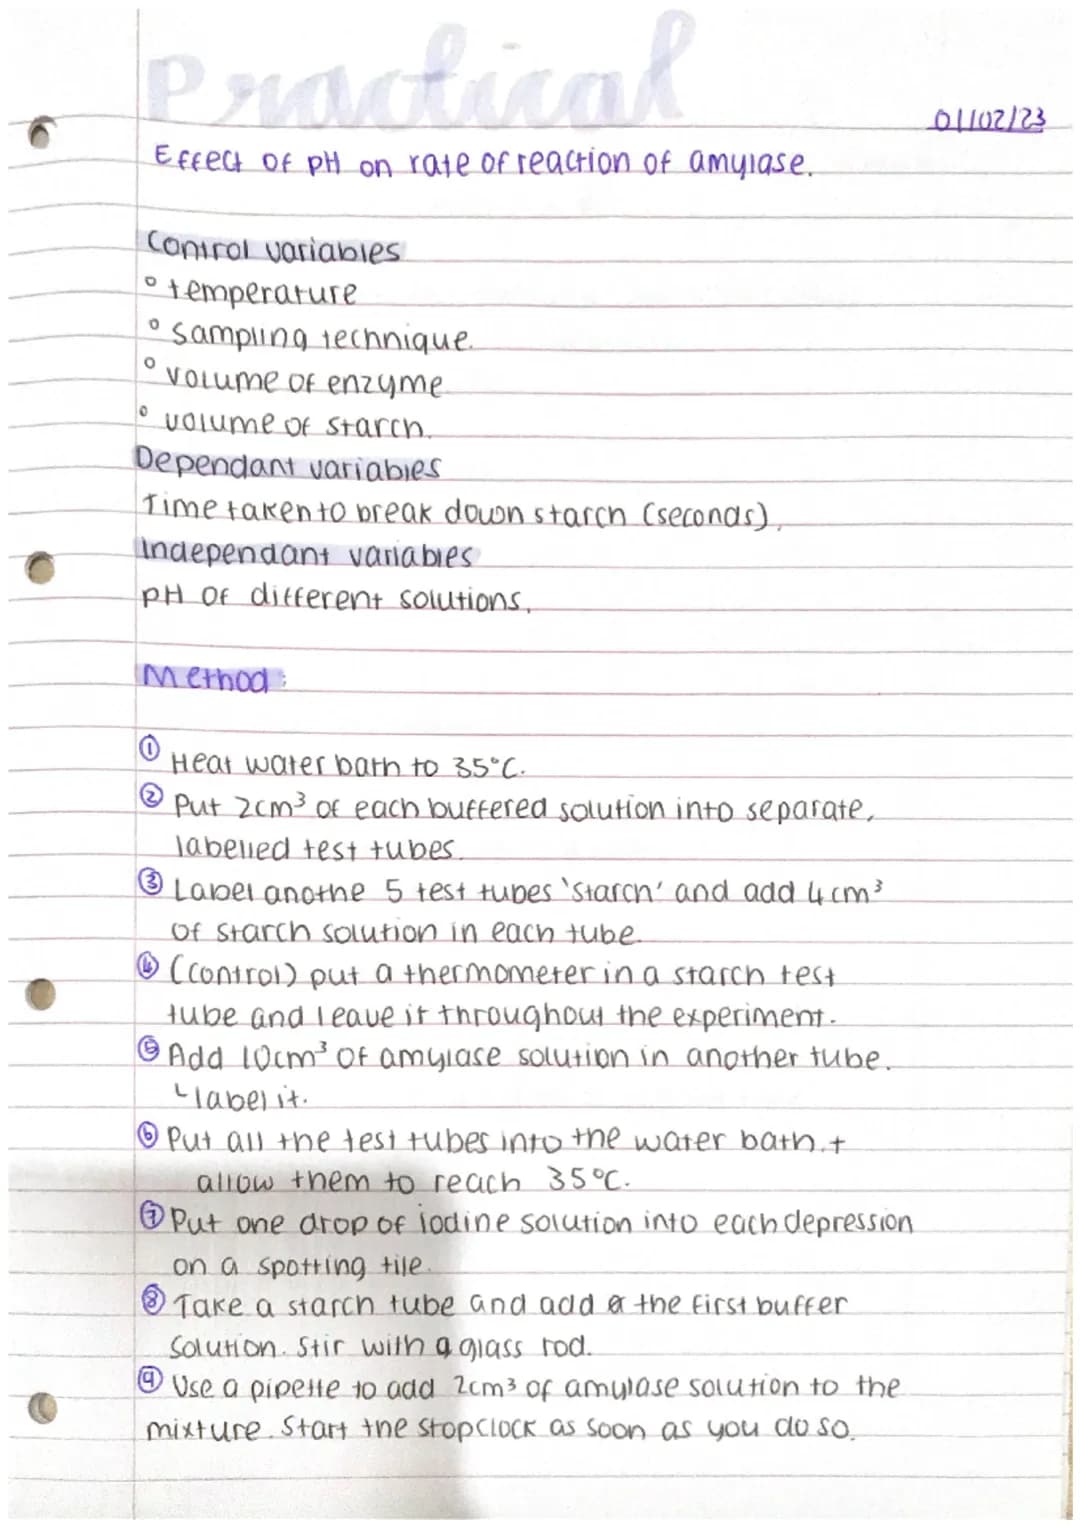 Practical
01/02/23
Effect of pH on rate of reaction of amylase.
Control variables
° temperature
° sampling technique.
° volume of enzyme
° volume of starch.
Dependant variables
Time taken to break down starch (seconds).
Independant variables
pH of different solutions.
Method:
① Heat water bath to 35°C.
② Put 2cm³ of each buffered solution into separate,
labelled test tubes.
③ Label anothe 5 test tubes 'starch' and add 4cm³
of starch solution in each tube.
④ (control) put a thermometer in a starch test
tube and leave it throughout the experiment.
⑤ Add 10cm³ of amylase solution in another tube.
↳label it.
⑥ Put all the test tubes into the water bath. +
allow them to reach 35°C.
⑦ Put one drop of iodine solution into each depression
on a spotting tile.
⑧ Take a starch tube and add the first buffer
solution. Stir with a glass rod.
⑨ Use a pipette to add 2cm³ of amylase solution to the
mixture. Start the stopclock as soon as you do so.